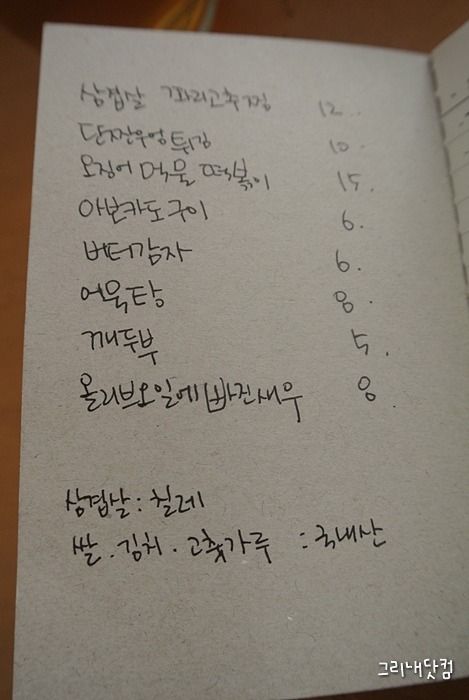 삼겹살 꽈리고추찜 12..
단짠우엉튀김 10..
오징어 먹물 떡볶이 15.
아보카도구이 6.
버터감자 6.
어묵탕 8.
깨두부 5.
올리브오일에 빠진새우 8
삼겹살 : 칠레
쌀 . 김치 . 고춧가루 : 국내산
그리내닷컴